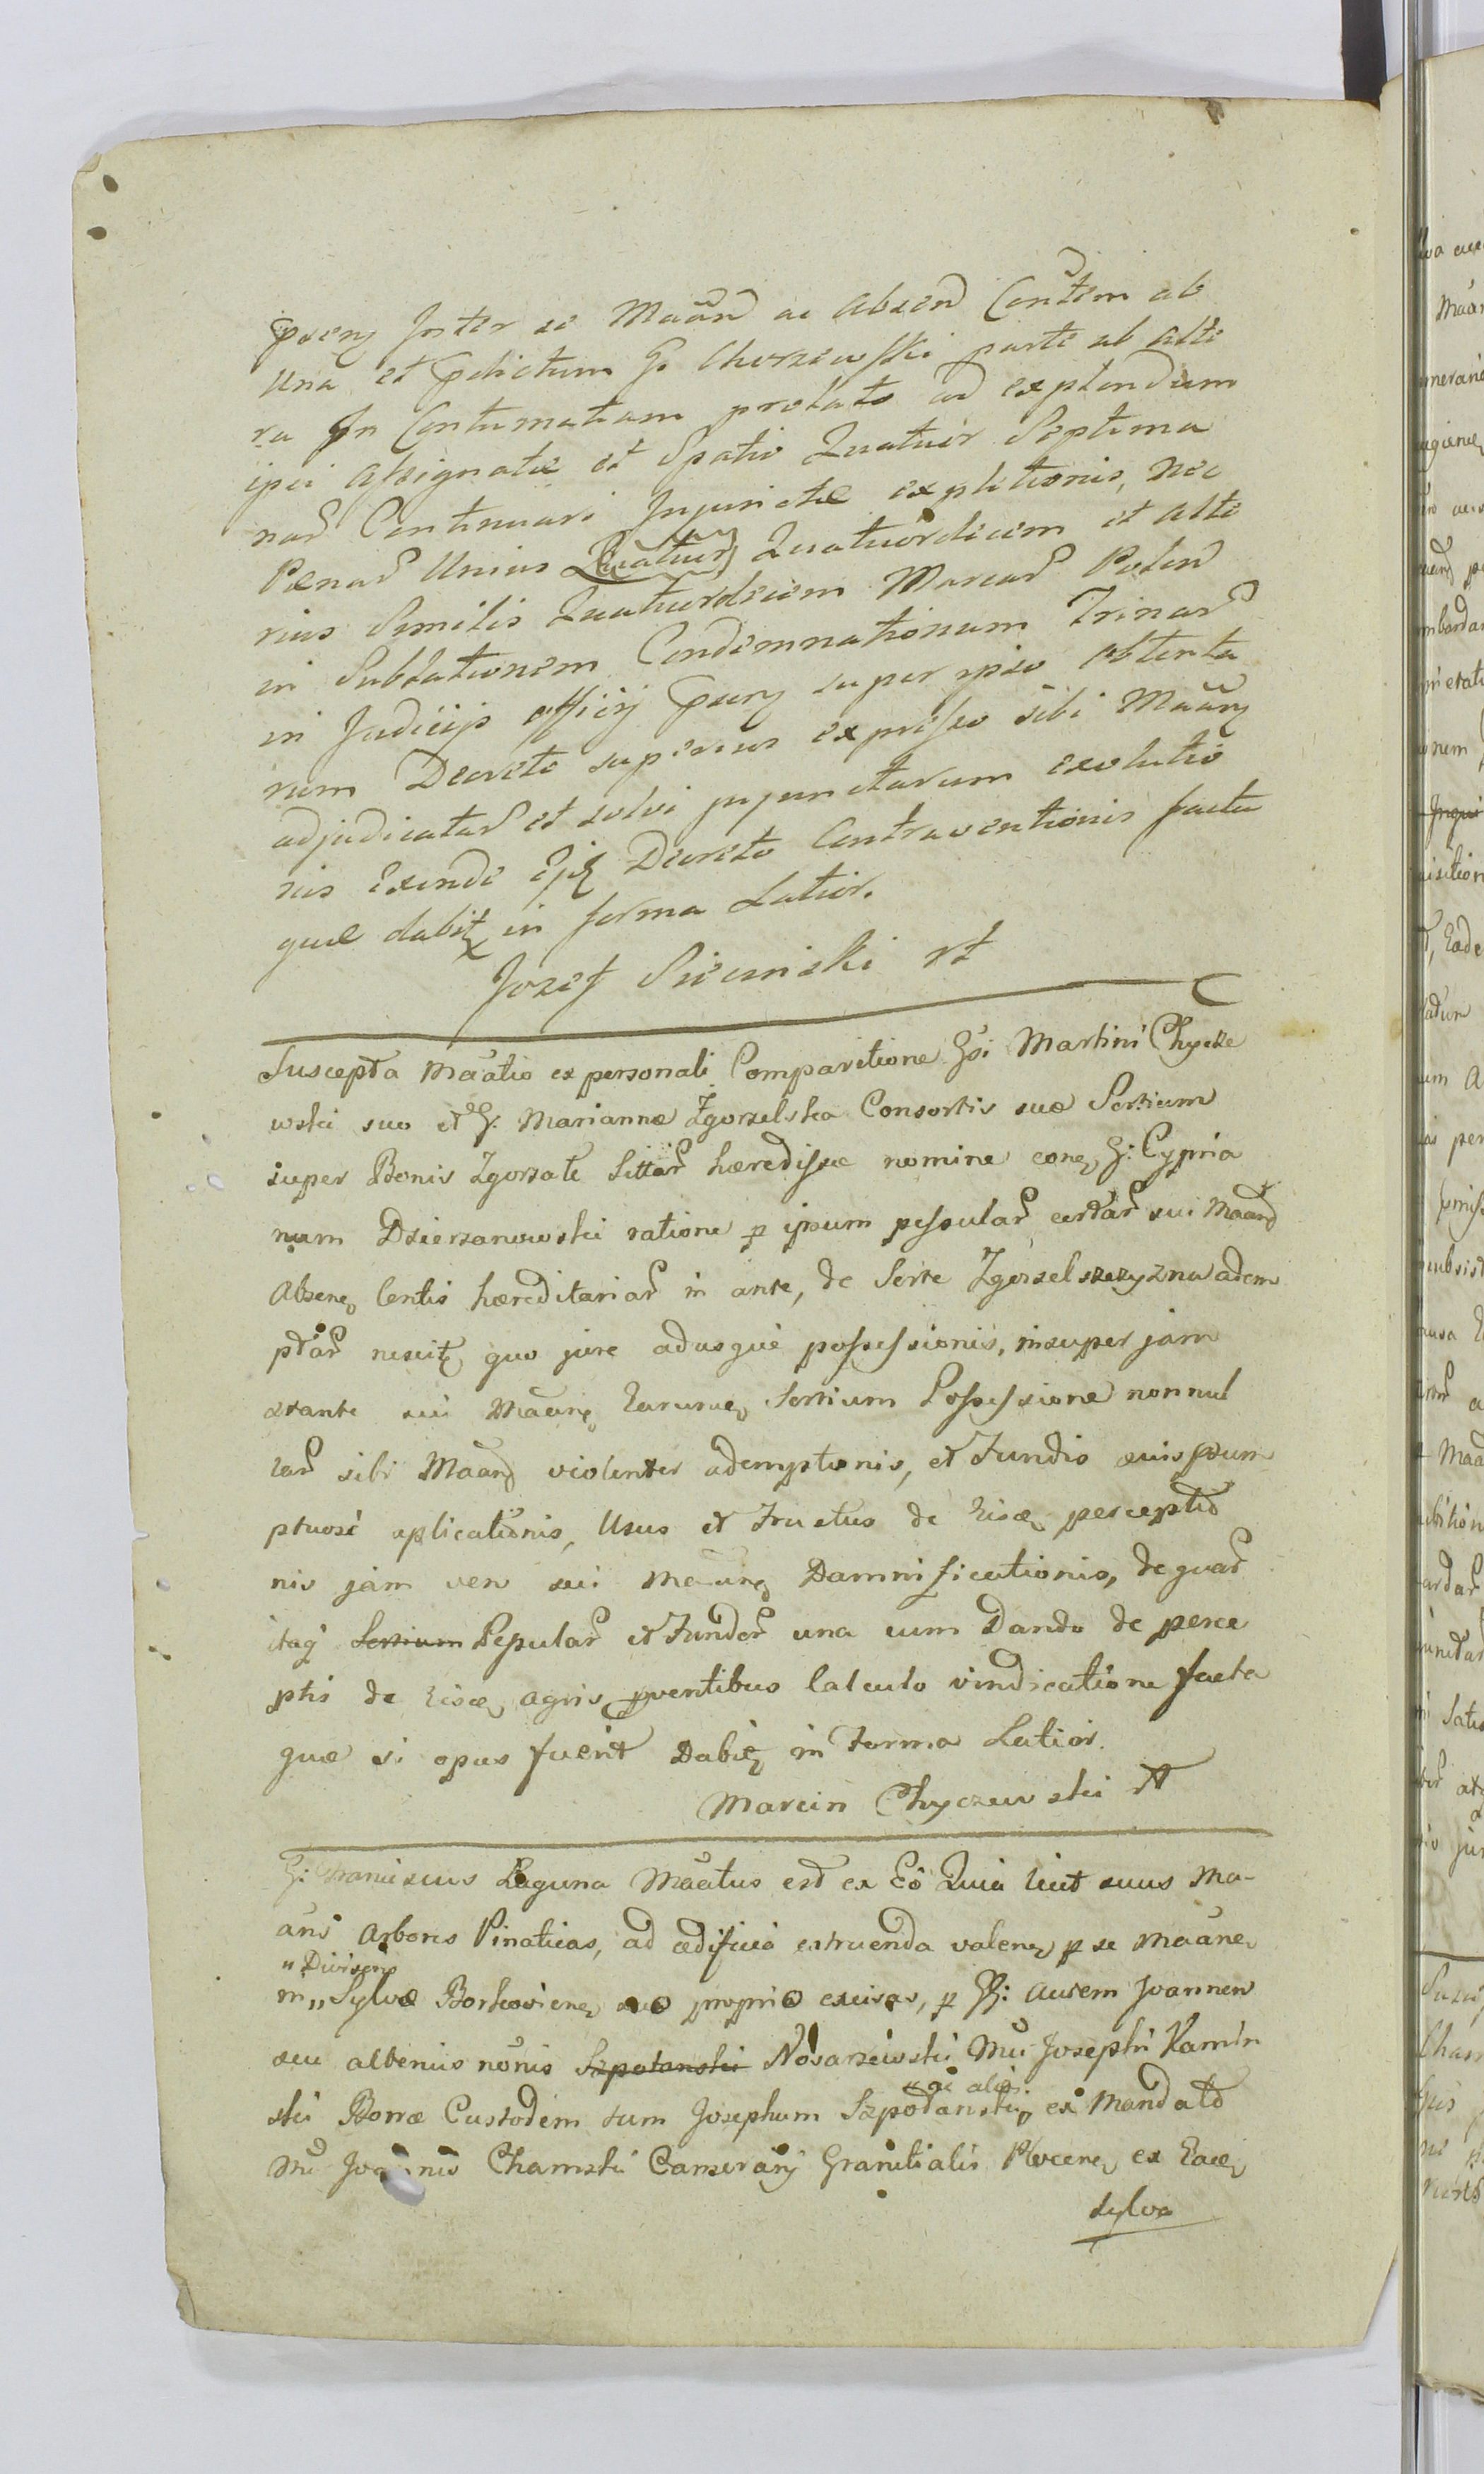 Inter se Maan ac Absen Contem ab
Una et Pdictum G. Chorzewski parte ab alte
ra In Contumatiam prolato ad explendum
ipsi assignatæ et Spatio Quatuor Septima
nar Continuari Injunctæ expletionis, nec
Pænar Unius Quatuor Quatuordecim et alte
rius Similis Quatuordecim Marcar Polon
in Sublationem Condemnationum Trinar
in Judicijs officij super ipso obtenta
rum Decreto superius expresso sibi Maan
adjudicatar et solvi injunctarum exolutio
nis Exinde Decreto Contraventionis facta
quæ dabit in forma Latior.
Jozef Siemiski
Suscepta Maatio ex personali Comparitione Gsi Martini Chycze
wski suo et G. Mariannæ Zgorzelska Consortis suæ Sortium
super Bonis Zgorzałe Sittar hæredissæ nomine G: Cypria
num Dzierzanowski ratione p ipsum pessular certar sui Maan
Absen hæreditariar in ante, de Sorte Zgorzelszczyzna adem
ptar nescit quo jure adusque possessionis, insuper jam
exante sui Maan Sortium Possessione nonnul
lar sibi Maan violenter ademptionis, et Fundis suis
ptuose aplicationis, Usus et Fructus de perceptio
nis jam vero sui Maan Damnificationis, de quar
itaq Sortium Pepular et Fundor una cum Dando de perce
ptis de agris pventibus Calculo vindicatione facta
quæ si opus fuerit Dabit in Forma Latior.
Marcin Chyczewski
G: Franciscus Laguna Maatus est ex Eo Quia licet suus Ma-
ans Arbores Pinaticas, ad ædificia extruenda valen p se Maane
"Divisen
in " Sylva Borkovien proprio excisas, p G: autem Joannem
seu alterius nonis Szpotanski Nosarzewski Josephi Kamin
"ac alios
ski Borræ Custodem tum Josephum Szpotanski ex Mandato
Chamski Camerarij Granitialis Plocen ex
Sylva